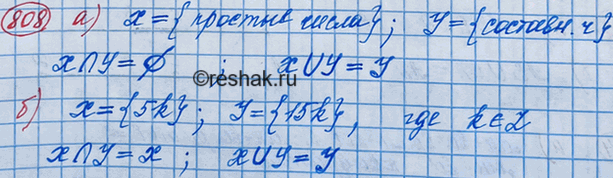 808 а) x={простые числа}; y={составн. ч}
x∩y=∅ ; x∪y=y
reshak.ru
б) x={5k}; y={15k}, где k∈Z
x∩y=x ; x∪y=y